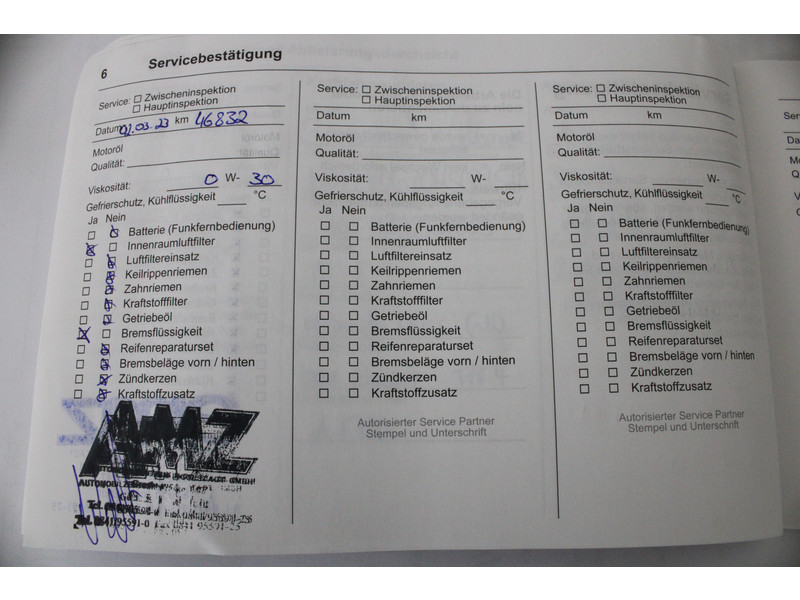 6 Servicebestätigung
Service: Zwischeninspektion
Hauptinspektion
Datum 01.03.23 km 46832
Motoröl
Qualität:
Viskosität: 0 W- 30
Gefrierschutz, Kühlflüssigkeit °C
Ja Nein
Batterie (Funkfernbedienung)
Innenraumluftfilter
Luftfiltereinsatz
Keilrippenriemen
Zahnriemen
Kraftstofffilter
Getriebeöl
Bremsflüssigkeit
Reifenreparaturset
Bremsbeläge vorn / hinten
Zündkerzen
Kraftstoffzusatz
AMZ
Service: Zwischeninspektion
Hauptinspektion
Datum km
Motoröl
Qualität:
Viskosität: W-
Gefrierschutz, Kühlflüssigkeit °C
Ja Nein
Batterie (Funkfernbedienung)
Innenraumluftfilter
Luftfiltereinsatz
Keilrippenriemen
Zahnriemen
Kraftstofffilter
Getriebeöl
Bremsflüssigkeit
Reifenreparaturset
Bremsbeläge vorn / hinten
Zündkerzen
Kraftstoffzusatz
Autorisierter Service Partner
Stempel und Unterschrift
Service: Zwischeninspektion
Hauptinspektion
Datum km
Motoröl
Qualität:
Viskosität: W-
Gefrierschutz, Kühlflüssigkeit °C
Ja Nein
Batterie (Funkfernbedienung)
Innenraumluftfilter
Luftfiltereinsatz
Keilrippenriemen
Zahnriemen
Kraftstofffilter
Getriebeöl
Bremsflüssigkeit
Reifenreparaturset
Bremsbeläge vorn / hinten
Zündkerzen
Kraftstoffzusatz
Autorisierter Service Partner
Stempel und Unterschrift